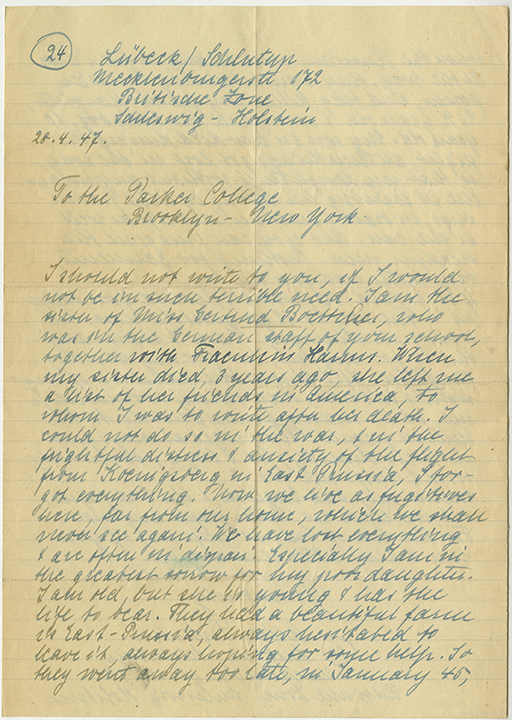 24
Lübeck / Schlutup
Mecklenburgerstr. 172
Britische Zone
Schleswig-Holstein
20.4.47.
To the Parker College
Brooklyn- New York.
I should not write to you, if I would
not be in such terrible need. I am the
sister of Miss Gertrud Boettcher, who
was in the German staff of your school,
together with Fraeulein Hamm. When
my sister died, 3 years ago, she left me
a list of her friends in America, to
whom I was to write after her death. I
could not do so in the war, & in the
frightful distress & anxiety of the flight
from Koenigsberg in East Prussia, I for-
got everything. Now we live as fugitives
here, far from our home, which we shall
never see again. We have lost everything
& are often in dispair. Especially I am in
the greatest sorrow for my poor daughter.
I am old, but she is young & has the
life to bear. They had a beautiful farm
in East-Prussia, always hesitated to
leave it, always hoping for some help. So
they went away too late, in January 45,